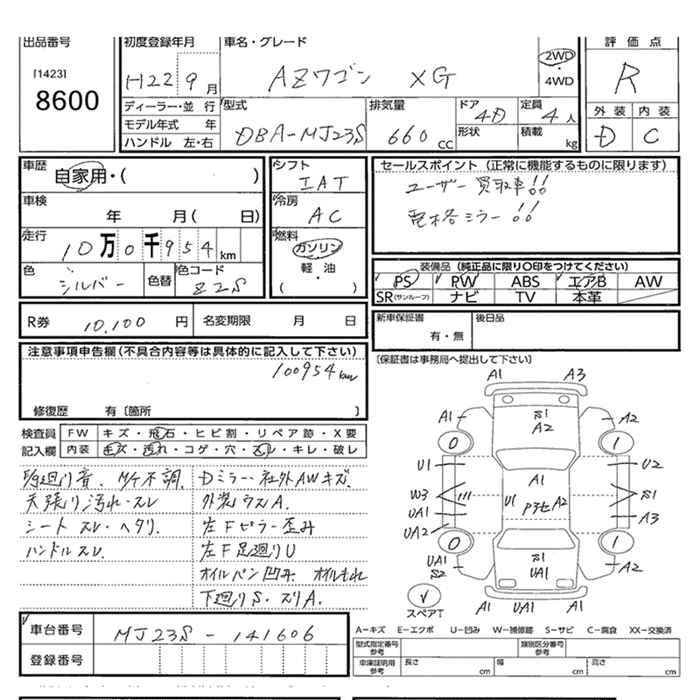 出品番号
[1423]
8600
初度登録年月
H22 9月
車名・グレード
AZワゴン XG
2WD
・
4WD
評価点
R
外装 内装
D C
ディーラー・並行
モデル年式 年
ハンドル 左・右
型式
DBA-MJ23S
排気量
660cc
ドア
4D
形状
定員
4人
積載
kg
車歴
自家用・( )
車検
年 月( 日)
走行
10万0千954km
色
シルバー
色替
色コード
Z2S
シフト
IAT
冷房
AC
燃料
ガソリン
軽・油
( )
セールスポイント (正常に機能するものに限ります)
ユーザー買取車!!
電格ミラー!!
装備品 (純正品に限り○印をつけてください)
PS PW ABS エアB AW
SR(サンルーフ) ナビ TV 本革
R券 10,100円
名変期限 月 日
新車保証書
有・無
後日品
(保証書は事務局へ提出して下さい)
注意事項申告欄(不具合内容等は具体的に記入して下さい)
100954km
修復歴 有〔箇所 〕
検査員
記入欄
FW キズ・飛石・ヒビ割・リペア跡・X要
内装 キズ・汚れ・コゲ・穴・スレ・キレ・破レ
足廻り音. M/T不調.
天張り汚れ・スレ
シート スレ・ヘタリ.
ハンドルスレ.
Dミラー・社外AWキズ.
外装ウスA.
左Fピラー歪み
左F足廻りU
オイルパン凹み オイルもれ
下廻りS・スリA.
A1 A3
A1 S1 A2 A2
0 1
U1 A1 U2
W3 U1 P3セ A2 S1
UA1 A3
UA2
0 1
UA1 S1 A2
S2 UA1
A1 UA1 A1
スペアT
車台番号 MJ23S-141606
登録番号
A−キズ E−エクボ U−凹み W−補修跡 S−サビ C−腐食 XX−交換済
型式指定番号
参考
類別区分番号
参考
車庫証明用
参考
長さ cm
幅 cm
高さ cm